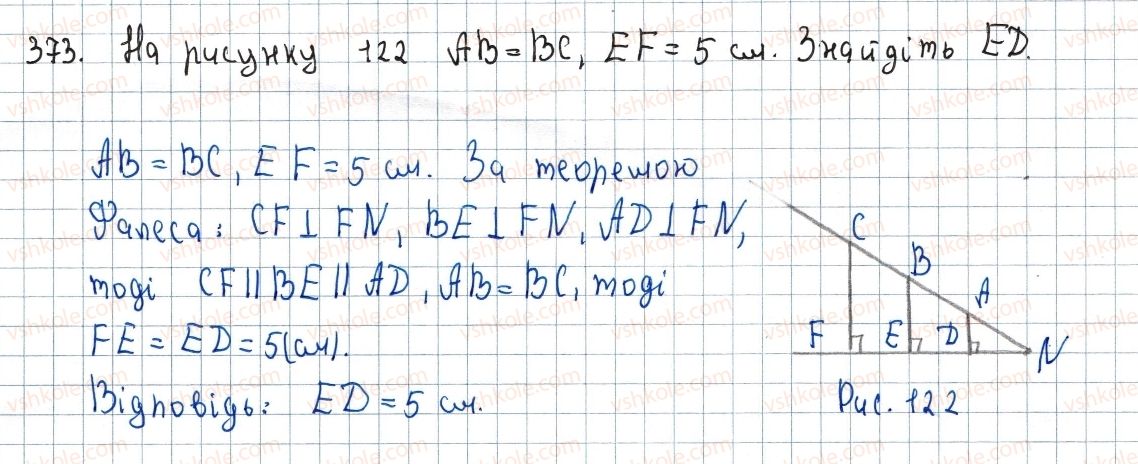 373. На рисунку 122 AB = BC, EF = 5 см. Знайдіть ED.
AB = BC, EF = 5 см. За теоремою
Фалеса: CF ⊥ FN, BE ⊥ FN, AD ⊥ FN,
тоді CF || BE || AD, AB = BC, тоді
FE = ED = 5 (см).
Відповідь: ED = 5 см.
C
B
A
F E D N
Рис. 122